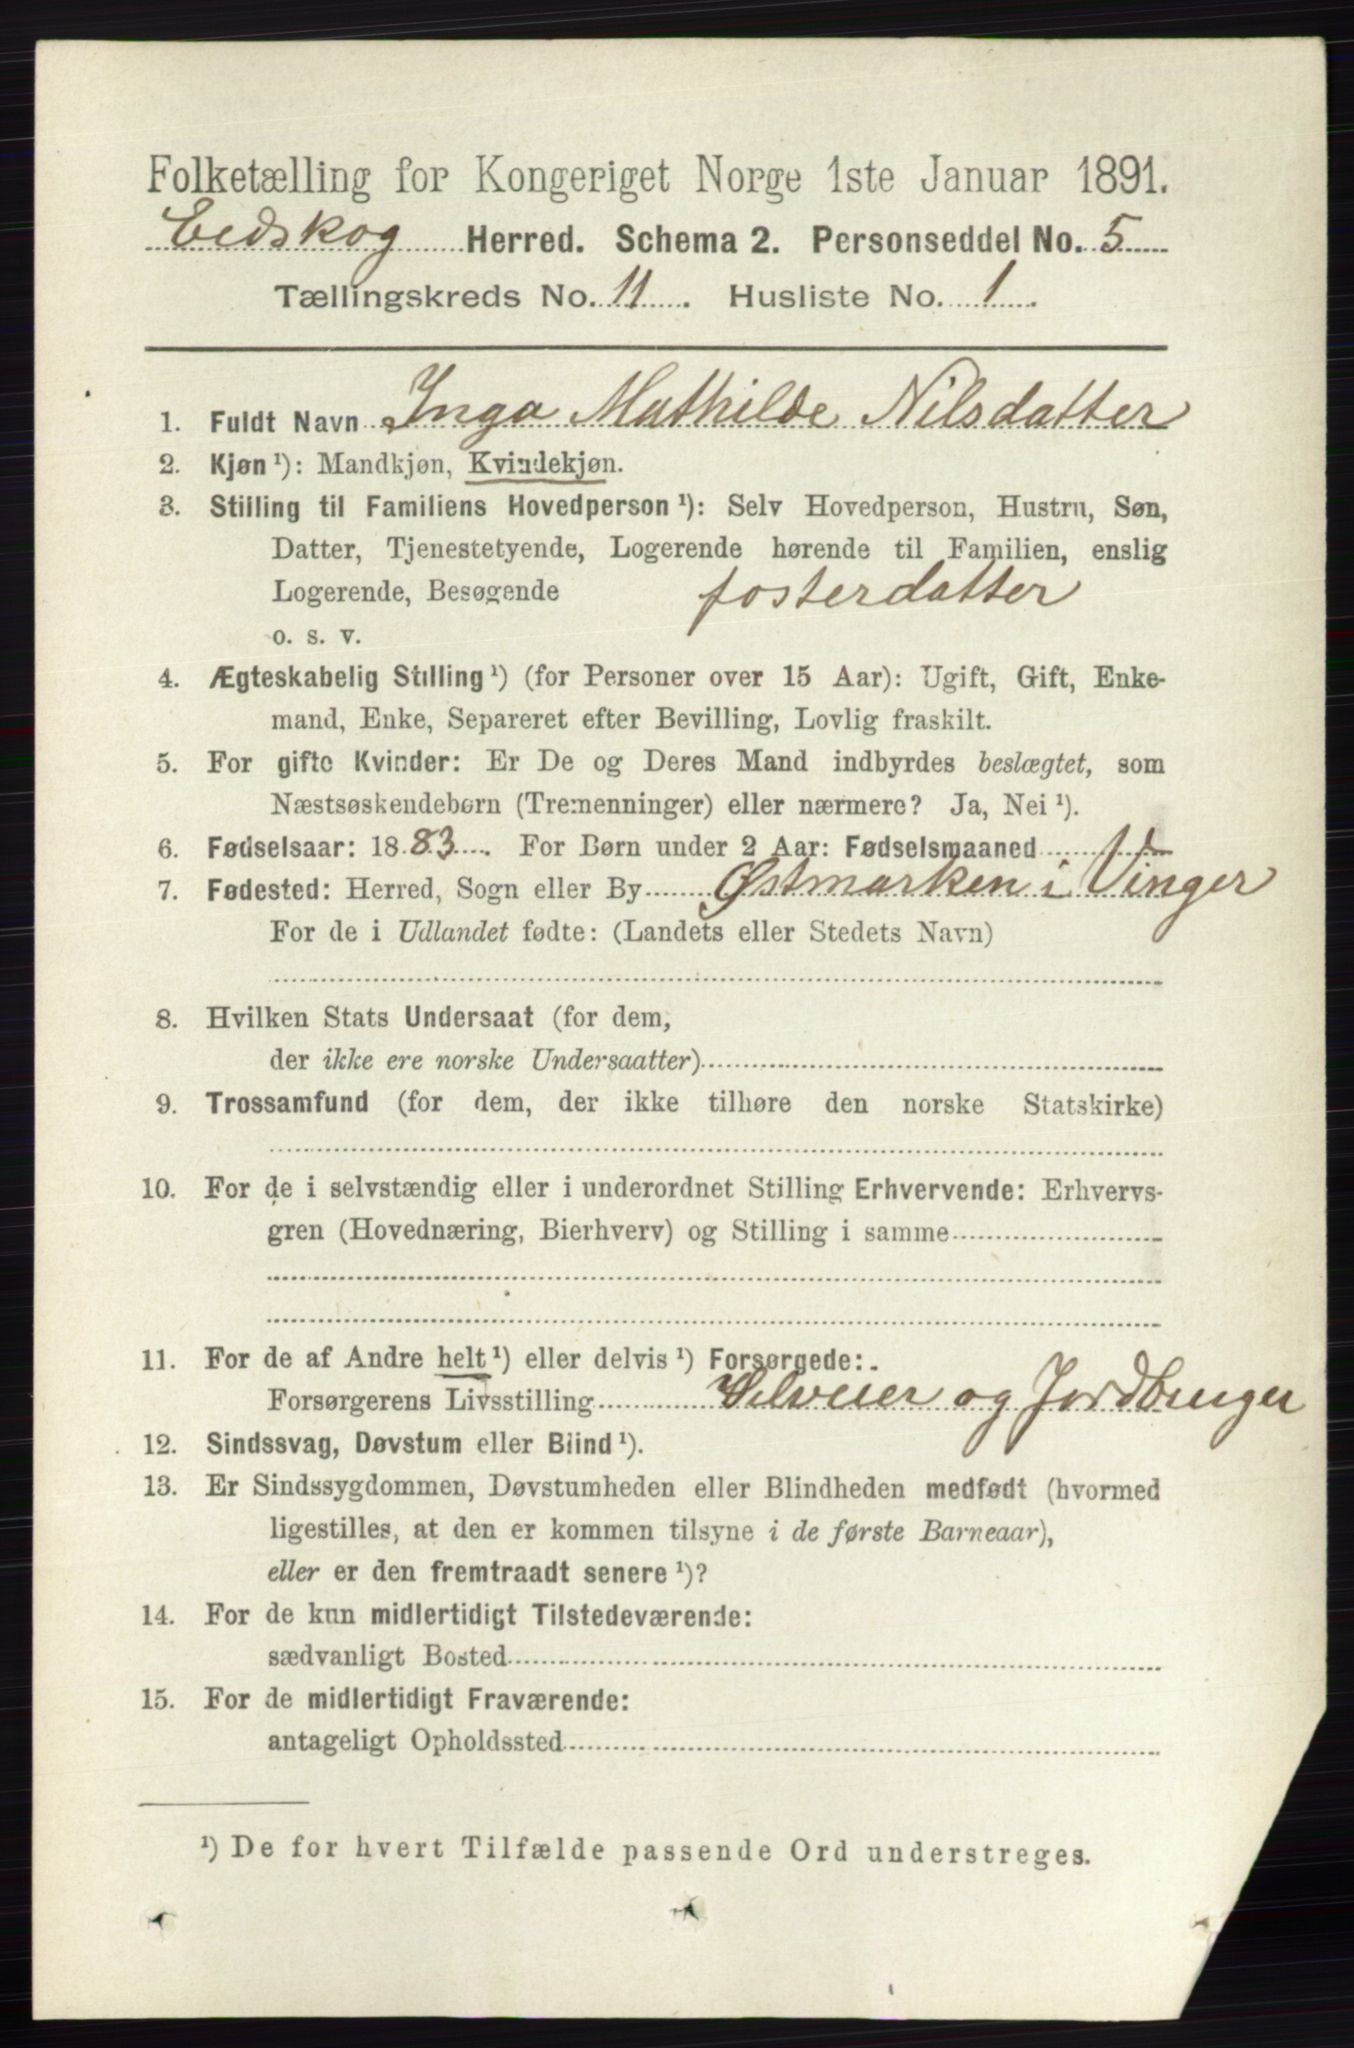 Folketælling for Kongeriget Norge 1ste Januar 1891.
Eidskog Herred. Schema 2. Personseddel No. 5
Tællingskreds No. 11. Husliste No. 1.
1. Fuldt Navn Inga Mathilde Nilsdatter
2. Kjøn¹): Mandkjøn, Kvindekjøn.
3. Stilling til Familiens Hovedperson¹): Selv Hovedperson, Hustru, Søn,
Datter, Tjenestetyende, Logerende hørende til Familien, enslig
Logerende, Besøgende fosterdatter
o. s. v.
4. Ægteskabelig Stilling¹) (for Personer over 15 Aar): Ugift, Gift, Enke-
mand, Enke, Separeret efter Bevilling, Lovlig fraskilt.
5. For gifte Kvinder: Er De og Deres Mand indbyrdes beslægtet, som
Næstsøskendebørn (Tremenninger) eller nærmere? Ja, Nei¹).
6. Fødselsaar: 1883. For Børn under 2 Aar: Fødselsmaaned
7. Fødested: Herred, Sogn eller By Østmarken i Vinger
For de i Udlandet fødte: (Landets eller Stedets Navn)
8. Hvilken Stats Undersaat (for dem,
der ikke ere norske Undersaatter)
9. Trossamfund (for dem, der ikke tilhøre den norske Statskirke)
10. For de i selvstændig eller i underordnet Stilling Erhvervende: Erhvervs-
gren (Hovednæring, Bierhverv) og Stilling i samme
11. For de af Andre helt¹) eller delvis¹) Forsørgede:
Forsørgerens Livsstilling Selveier og Jordbruger
12. Sindssvag, Døvstum eller Blind¹).
13. Er Sindssygdommen, Døvstumheden eller Blindheden medfødt (hvormed
ligestilles, at den er kommen tilsyne i de første Barneaar),
eller er den fremtraadt senere¹)?
14. For de kun midlertidigt Tilstedeværende:
sædvanligt Bosted
15. For de midlertidigt Fraværende:
antageligt Opholdssted
¹) De for hvert Tilfælde passende Ord understreges.